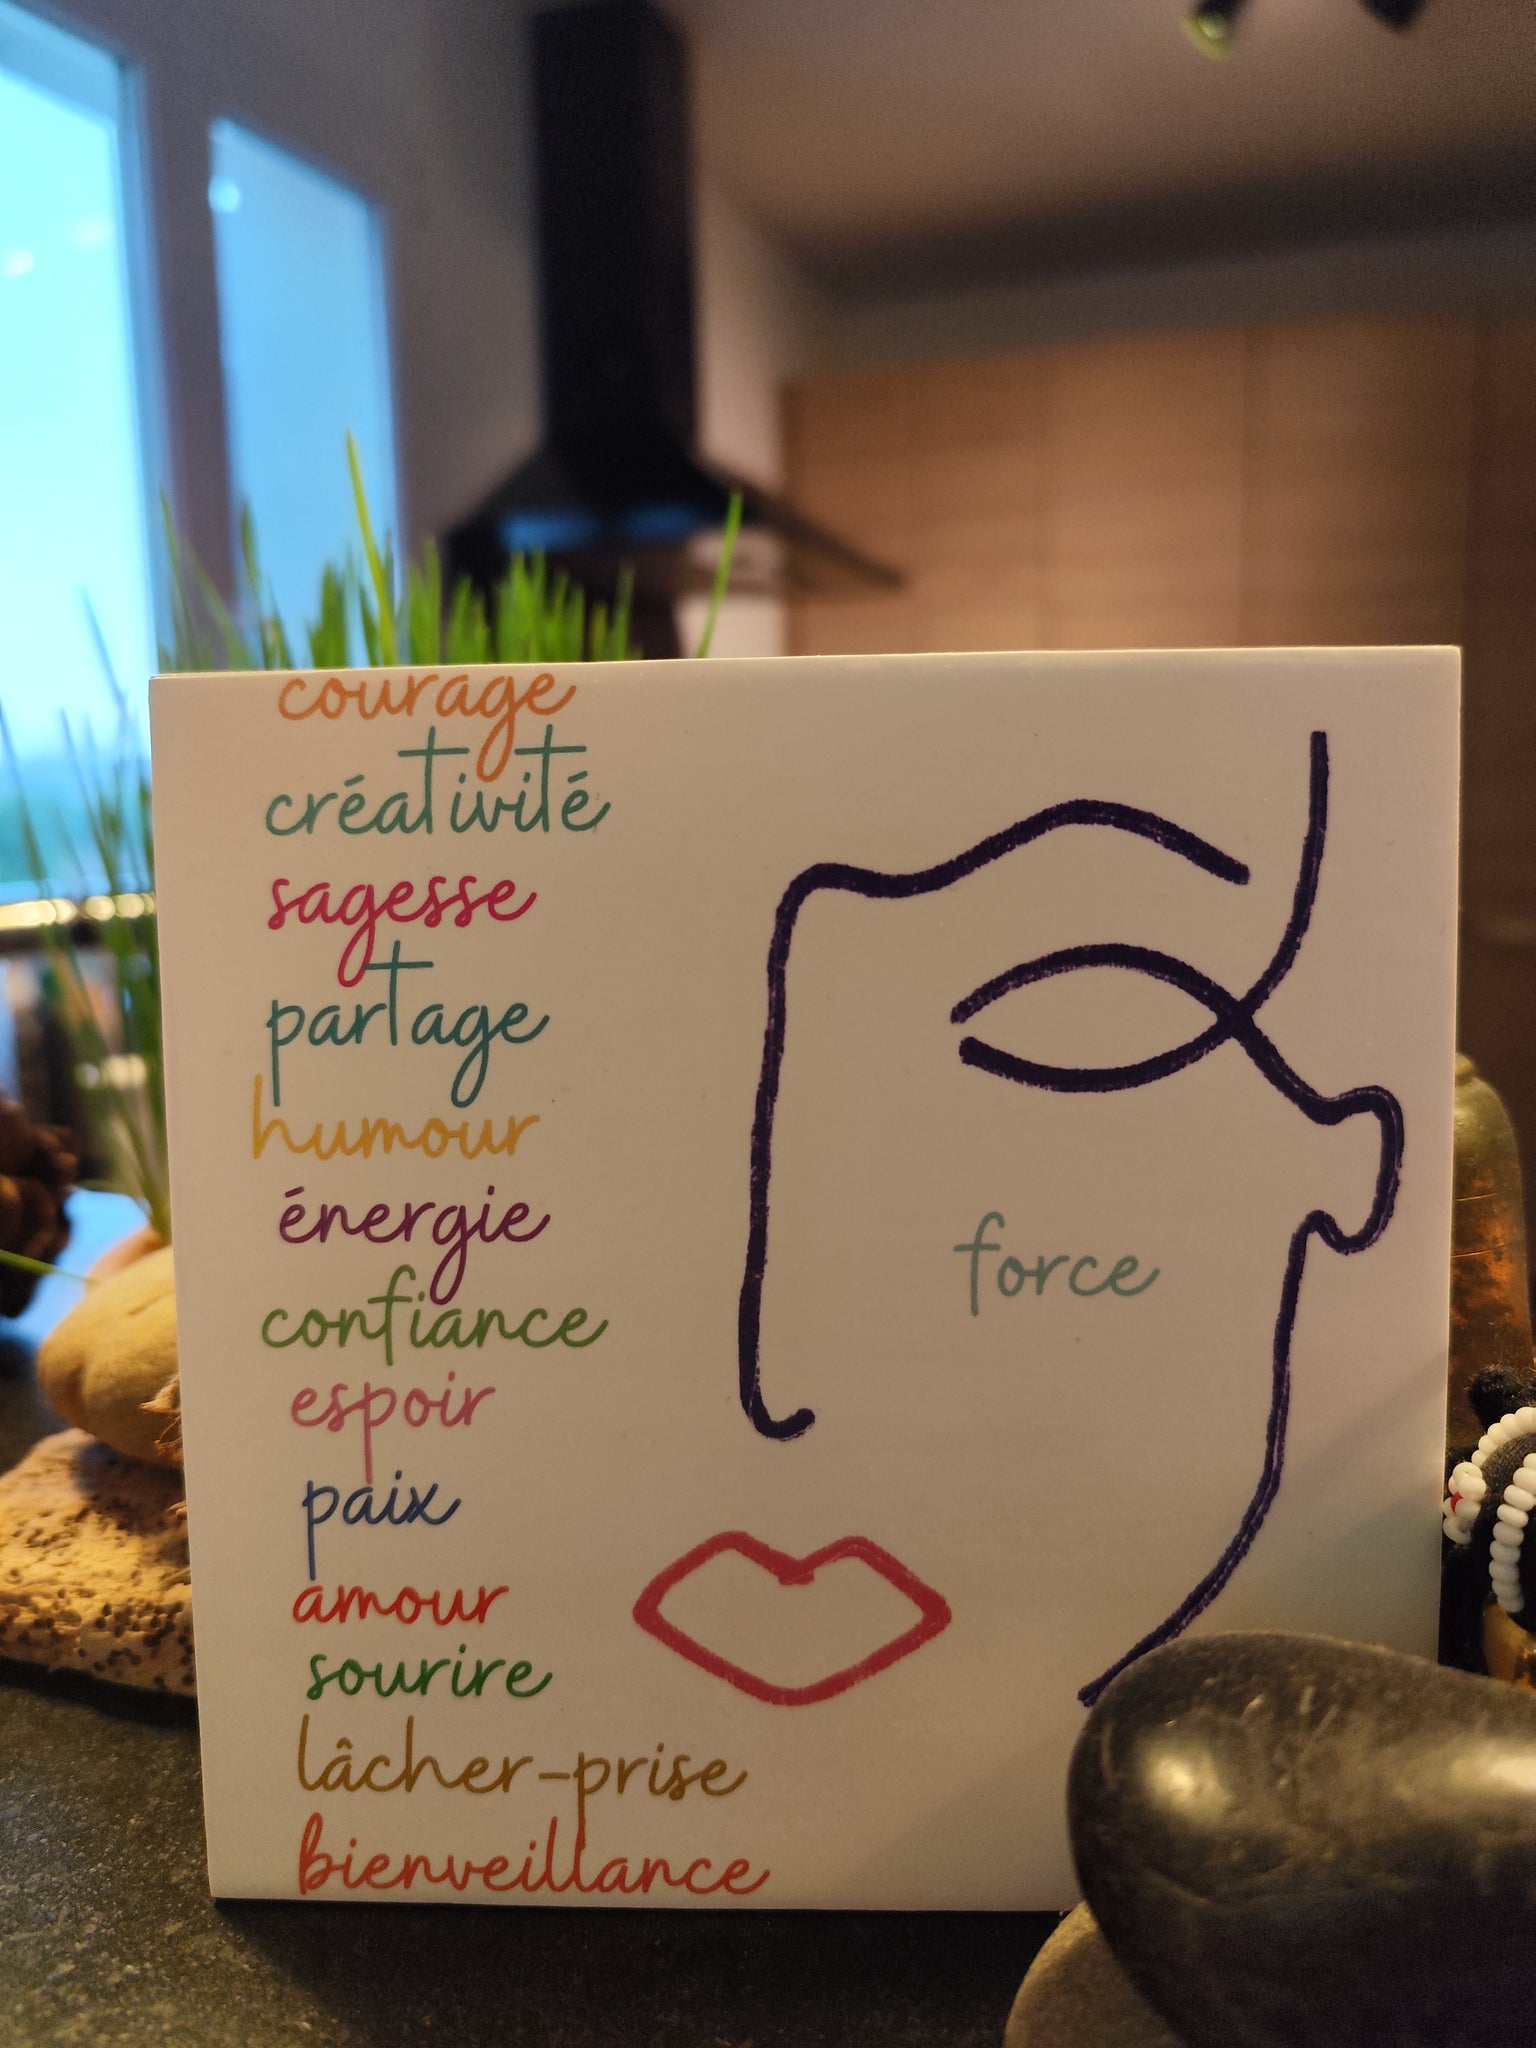 courage
créativité
sagesse
partage
humour
énergie
confiance
espoir
paix
amour
sourire
lâcher-prise
bienveillance
force